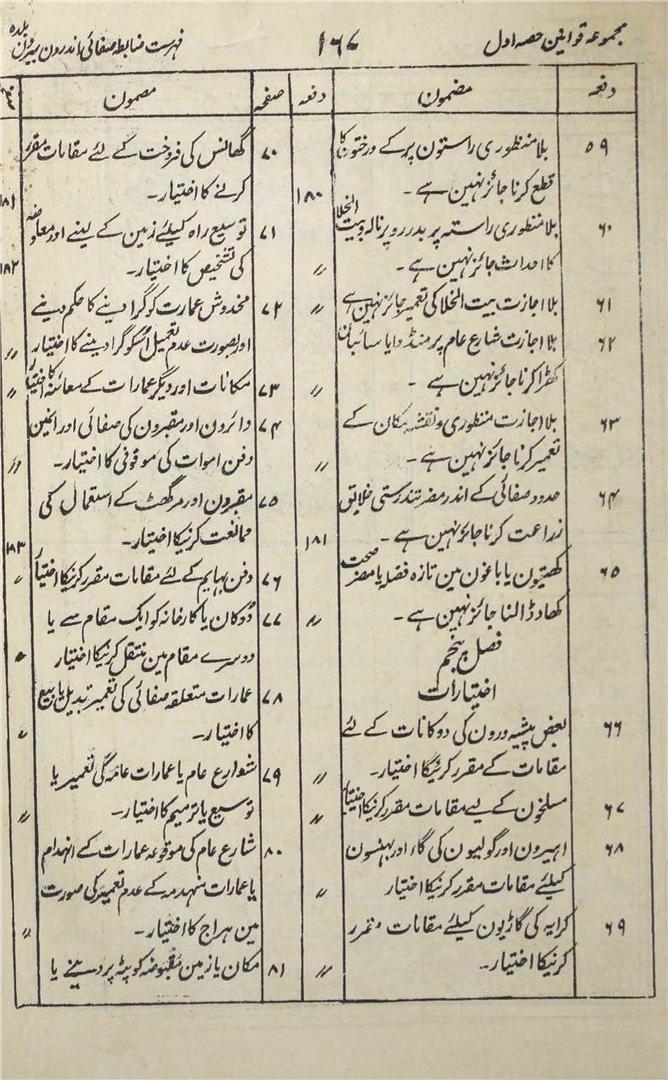 مجموعہ قوانین حصہ اول
۱۶۷
فہرست ضابطہ صفائی اندرون بیرون بلدہ
دفعہ
مضمون
دفعہ
صفحہ
مضمون
۵۹
بلا منظوری راستون پر کے درختون کا
قطع کرنا جائز نہین ہے -
۱۸۰
۶۰
بلا منظوری راستہ پر بدررو پرنالہ و بیت الخلا
کا احداث جائز نہین ہے -
〃
۶۱
بلا اجازت بیت الخلا کی تعمیر جائز نہین ہے
〃
۶۲
بلا اجازت شارع عام پر منڈوا یا سائبان
کھڑا کرنا جائز نہین ہے -
〃
۶۳
بلا اجازت منظوری و نقشہ مکان کے
تعمیر کرنا جائز نہین ہے -
〃
۶۴
حدود صفائی کے اندر مضر تندرستی خلایق
زراعت کرنا جائز نہین ہے -
۱۸۱
۶۵
کھیتون یا باغون مین تازہ فضلہ یا مضر صحت
کھاد ڈالنا جائز نہین ہے -
〃
فصل پنجم
اختیارات
۶۶
بعض پیشہ ورون کی دوکانات کے لئے
مقامات کے مقرر کرنیکا اختیار-
〃
۶۷
مسلخون کے لیے مقامات مقرر کرنیکا اختیار
〃
۶۸
اہیرون اور گولیون کی گاء اور بہنسون
کیلئے مقامات مقرر کرنیکا اختیار
〃
۶۹
کرایہ کی گاڑیون کیلئے مقامات مقرر
کرنیکا اختیار-
〃
۷۰
گھانس کی فروخت کے لئے مقامات مقرر
کرنے کا اختیار-
۱۸۱
۷۱
توسیع راہ کیلئے زمین کے لینے اور معاوضہ
کی تشخیص کا اختیار-
۱۸۲
۷۲
مخدوش عمارت کو گرا دینے کا حکم دینے
اور بصورت عدم تعمیل اسکو گرا دینے کا اختیار
〃
۷۳
مکانات اور دیگر عمارات کے معائنہ کا اختیار
〃
۷۴
دائرون اور مقبرون کی صفائی اور انہین
دفن اموات کی موقوفی کا اختیار-
〃
۷۵
مقبرون اور مرگھٹ کے استعمال کی
ممانعت کرنیکا اختیار-
۱۸۳
۷۶
دفن بہایم کے لئے مقامات مقرر کرنیکا اختیار
〃
۷۷
دوکان یا کارخانہ کو ایک مقام سے یا
دوسرے مقام مین منتقل کرنیکا اختیار
〃
۷۸
عمارات متعلقہ صفائی کی تعمیر تبدیل یا بیع
کا اختیار-
〃
۷۹
شوارع عام یا عمارات عامہ کی تعمیر یا
توسیع یا ترمیم کا اختیار-
〃
۸۰
شارع عام کی موقوعہ عمارات کے انہدام
یا عمارات منہدمہ کے عدم تعمیر کی صورت
مین ہراج کا اختیار-
〃
۸۱
مکان یا زمین مقبوضہ کو پٹہ پر دینے یا